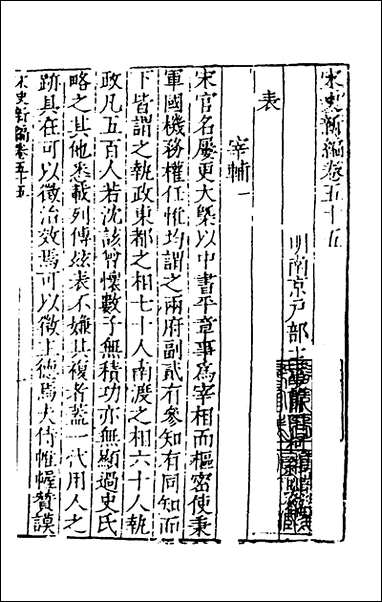 宋史新編卷五十五
明南京戶部主
表
宰輔一
宋官名屢更大槩以中書平章事為宰相而樞密使秉
軍國機務權任惟均謂之兩府副貳有參知有同知而
下皆謂之執政東都之相七十人南渡之相六十人執
政凡五百人若沈該曾懷數子無積功亦無顯過史氏
略之其他悉載列傳玆表不嫌其複者蓋一代用人之
跡具在可以徵治效焉可以徵主德焉夫侍帷幄贊謨
宋史新編卷五十五